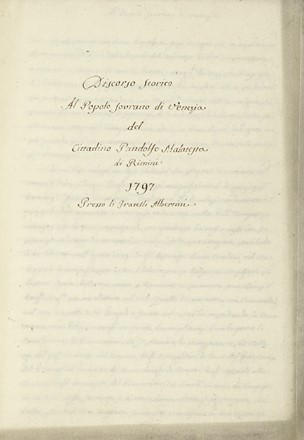 Discorso Storico
Al Popolo sovrano di Venezia
del
Cittadino Pandolfo Malatesta
di Rimini
1797
Presso li Fratelli Albertini